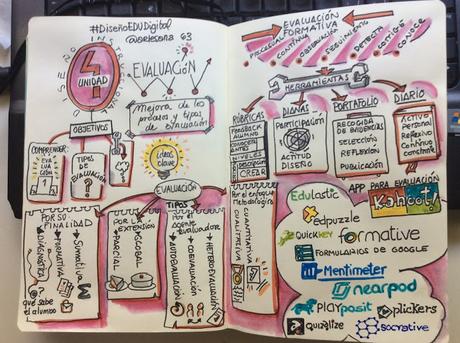 #DiseñoEDUDigital
4
UNIDAD
EVALUACIÓN
Mejora de los
procesos y tipos
de evaluación
OBJETIVOS
COMPRENDER
EVALUACIÓN
TIPOS
DE
EVALUACIÓN
?
ideas
clave
EVALUACIÓN
TIPOS
POR SU
FINALIDAD
DIAGNÓSTICA
FORMATIVA
Sumativa
qué sabe
el alumno
POR LA
EXTENSIÓN
PARCIAL
GLOBAL
Por el
Agente
Evaluador
AUTOEVALUACIÓN
COEVALUACIÓN
HETEROEVALUACIÓN
Por el enfoque
Metodológico
CUALITATIVA
CUANTITATIVA
EVALUACIÓN
FORMATIVA
PROCESUAL
CONTÍNUA
OBSERVACIÓN
SEGUIMIENTO
DETECTA
CORRIGE
CONOCE
HERRAMIENTAS
RÚBRICAS
FEEDBACK
ALUMNO
NIVELES
CREAR
DIANAS
Participación
ACTITUD
DISEÑO
PORTAFOLIO
RECOGIDA
DE EVIDENCIAS
SELECCIÓN
REFLEXIÓN
PUBLICACIÓN
DIARIO
ACTIVO
Personal
Reflexivo
Contínuo
constante
APP PARA EVALUACIÓN
Kahoot!
Edulastic
edpuzzle
QUICKKEY
formative
FORMULARIOS DE GOOGLE
Mentimeter
nearpod
PLAYposit
plickers
quizalize
socrative